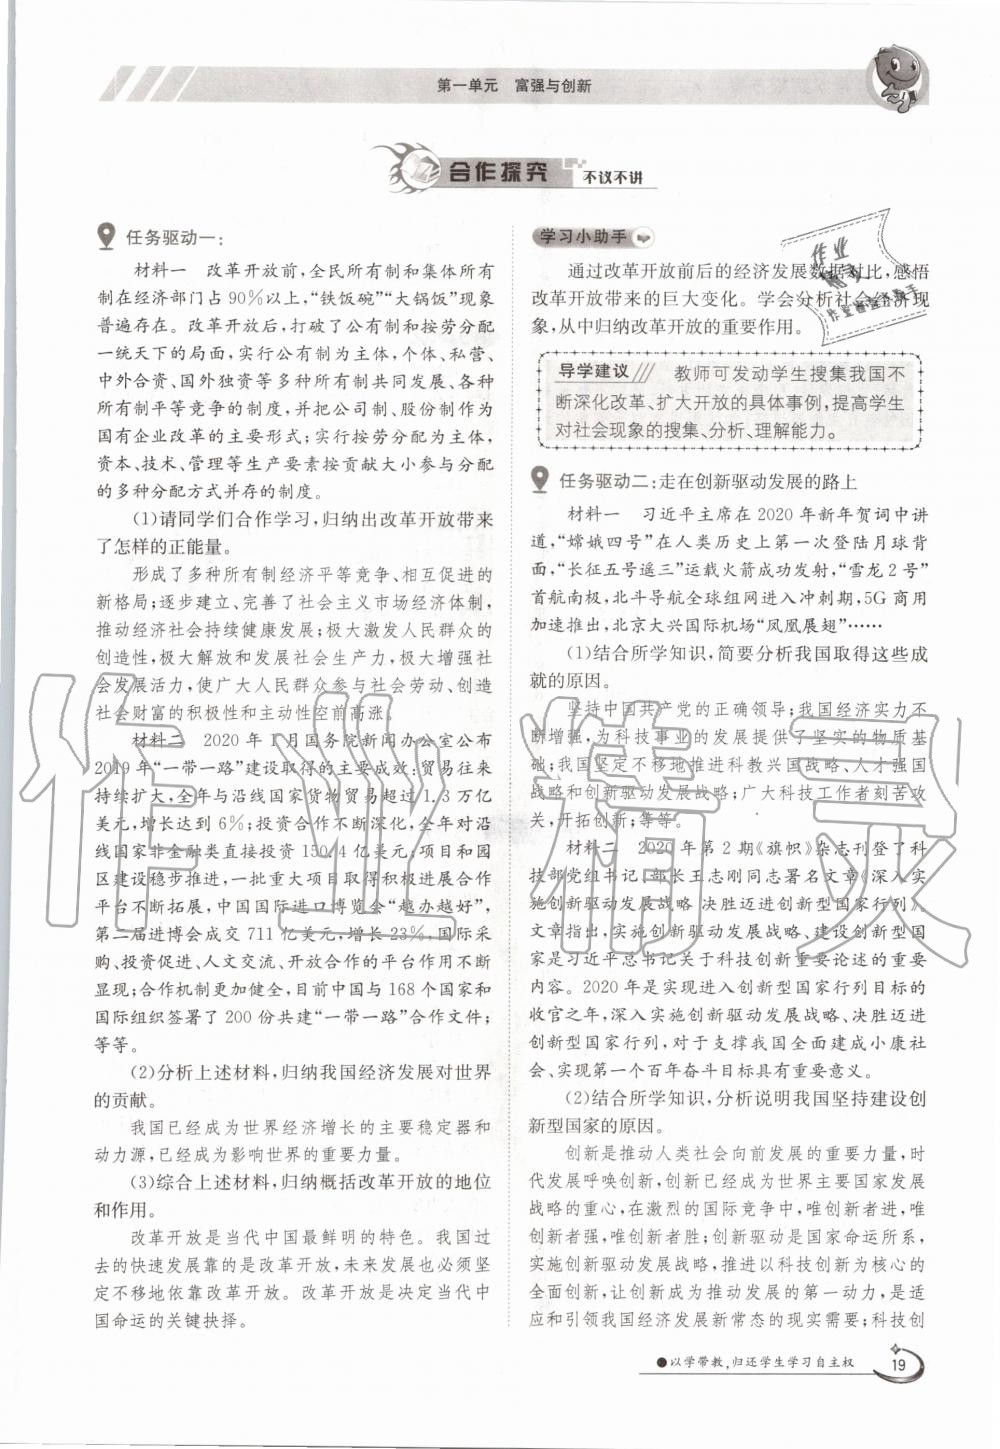 第一单元 富强与创新
合作探究 不议不讲
任务驱动一：
材料一 改革开放前，全民所有制和集体所有
制在经济部门占90%以上，“铁饭碗”“大锅饭”现象
普遍存在。改革开放后，打破了公有制和按劳分配
一统天下的局面，实行公有制为主体，个体、私营、
中外合资、国外独资等多种所有制共同发展、各种
所有制平等竞争的制度，并把公司制、股份制作为
国有企业改革的主要形式；实行按劳分配为主体，
资本、技术、管理等生产要素按贡献大小参与分配
的多种分配方式并存的制度。
(1)请同学们合作学习，归纳出改革开放带来
了怎样的正能量。
形成了多种所有制经济平等竞争、相互促进的
新格局；逐步建立、完善了社会主义市场经济体制，
推动经济社会持续健康发展；极大激发人民群众的
创造性，极大解放和发展社会生产力，极大增强社
会发展活力，使广大人民群众参与社会劳动、创造
社会财富的积极性和主动性空前高涨。
材料二 2020年1月国务院新闻办公室公布
2019年“一带一路”建设取得的主要成效：贸易往来
持续扩大，全年与沿线国家货物贸易超过1.3万亿
美元，增长达到6%；投资合作不断深化，全年对沿
线国家非金融类直接投资150.4亿美元；项目和园
区建设稳步推进，一批重大项目取得积极进展合作
平台不断拓展，中国国际进口博览会“越办越好”，
第二届进博会成交711亿美元，增长23%，国际采
购、投资促进、人文交流、开放合作的平台作用不断
显现；合作机制更加健全，目前中国与168个国家和
国际组织签署了200份共建“一带一路”合作文件；
等等。
(2)分析上述材料，归纳我国经济发展对世界
的贡献。
我国已经成为世界经济增长的主要稳定器和
动力源，已经成为影响世界的重要力量。
(3)综合上述材料，归纳概括改革开放的地位
和作用。
改革开放是当代中国最鲜明的特色。我国过
去的快速发展靠的是改革开放，未来发展也必须坚
定不移地依靠改革开放。改革开放是决定当代中
国命运的关键抉择。
学习小助手
通过改革开放前后的经济发展数据对比，感悟
改革开放带来的巨大变化。学会分析社会经济现
象，从中归纳改革开放的重要作用。
导学建议 教师可发动学生搜集我国不
断深化改革、扩大开放的具体事例，提高学生
对社会现象的搜集、分析、理解能力。
任务驱动二：走在创新驱动发展的路上
材料一 习近平主席在2020年新年贺词中讲
道，“嫦娥四号”在人类历史上第一次登陆月球背
面，“长征五号遥三”运载火箭成功发射，“雪龙2号”
首航南极，北斗导航全球组网进入冲刺期，5G商用
加速推出，北京大兴国际机场“凤凰展翅”……
(1)结合所学知识，简要分析我国取得这些成
就的原因。
坚持中国共产党的正确领导；我国经济实力不
断增强，为科技事业的发展提供了坚实的物质基
础；我国坚定不移地推进科教兴国战略、人才强国
战略和创新驱动发展战略；广大科技工作者刻苦攻
关，开拓创新；等等。
材料二 2020年第2期《旗帜》杂志刊登了科
技部党组书记、部长王志刚同志署名文章《深入实
施创新驱动发展战略 决胜迈进创新型国家行列》。
文章指出，实施创新驱动发展战略、建设创新型国
家是习近平总书记关于科技创新重要论述的重要
内容。2020年是实现进入创新型国家行列目标的
收官之年，深入实施创新驱动发展战略、决胜迈进
创新型国家行列，对于支撑我国全面建成小康社
会、实现第一个百年奋斗目标具有重要意义。
(2)结合所学知识，分析说明我国坚持建设创
新型国家的原因。
创新是推动人类社会向前发展的重要力量，时
代发展呼唤创新，创新已经成为世界主要国家发展
战略的重心，在激烈的国际竞争中，唯创新者进，唯
创新者强，唯创新者胜；创新驱动是国家命运所系，
实施创新驱动发展战略，推进以科技创新为核心的
全面创新，让创新成为推动发展的第一动力，是适
应和引领我国经济发展新常态的现实需要；科技创
●以学带教，归还学生学习自主权
19
作业精灵